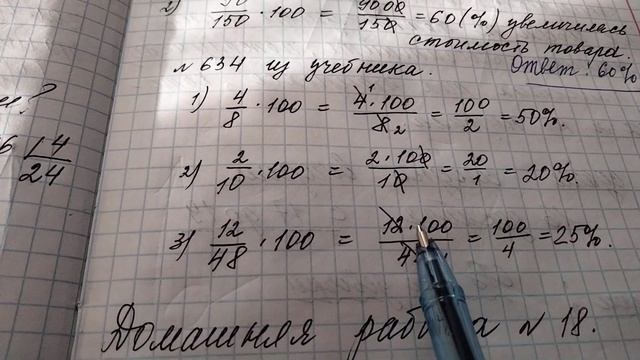 2) 90/150 · 100 = 9000/150 = 60 (%) увеличилась
стоимость товара.
Ответ: 60%
№ 634 из учебника.
1) 4/8 · 100 = 4¹ · 100/8 2 = 100/2 = 50%.
2) 2/10 · 100 = 2 · 100/10 = 20/1 = 20%.
3) 12/48 · 100 = 12 · 100/4 = 100/4 = 25%.
14/24
Домашняя работа № 18.